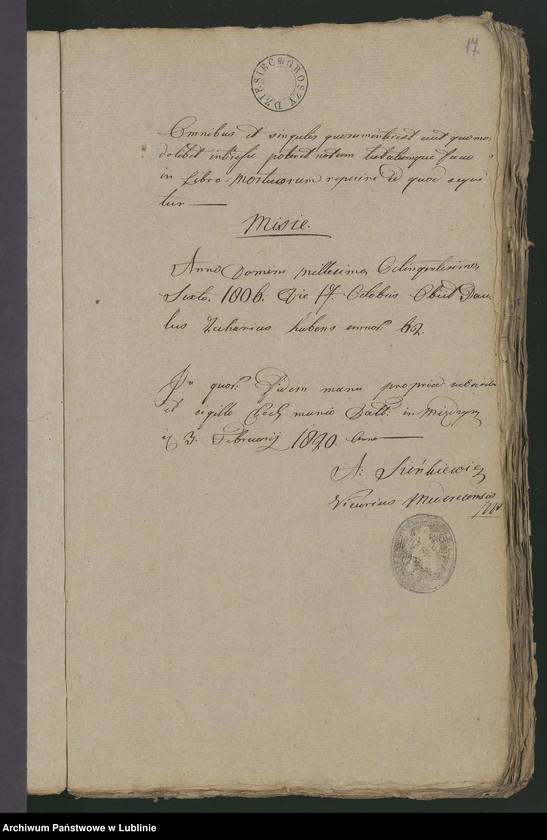 17
DZIESIĘC GROSZY
Omnibus et singulis quorum interest aut quomo
dolibet interesse poterit notum
in Libro Mortuorum reperire id quod sequi
tur —
Misie.
Anno Domini Millesimo Octingentesimo
Sexto. 1806. Die 17. Octobris Obiit Pau
lus Zacharius habens annor. 62.
In quor. Fidem manu propria
et sigillo Eccl. munio Datt: in Międzyrz
3. Februarij 1820. Anno —
A: Sieńkiewicz
Vicarius Medirecensis
Archiwum Państwowe w Lublinie